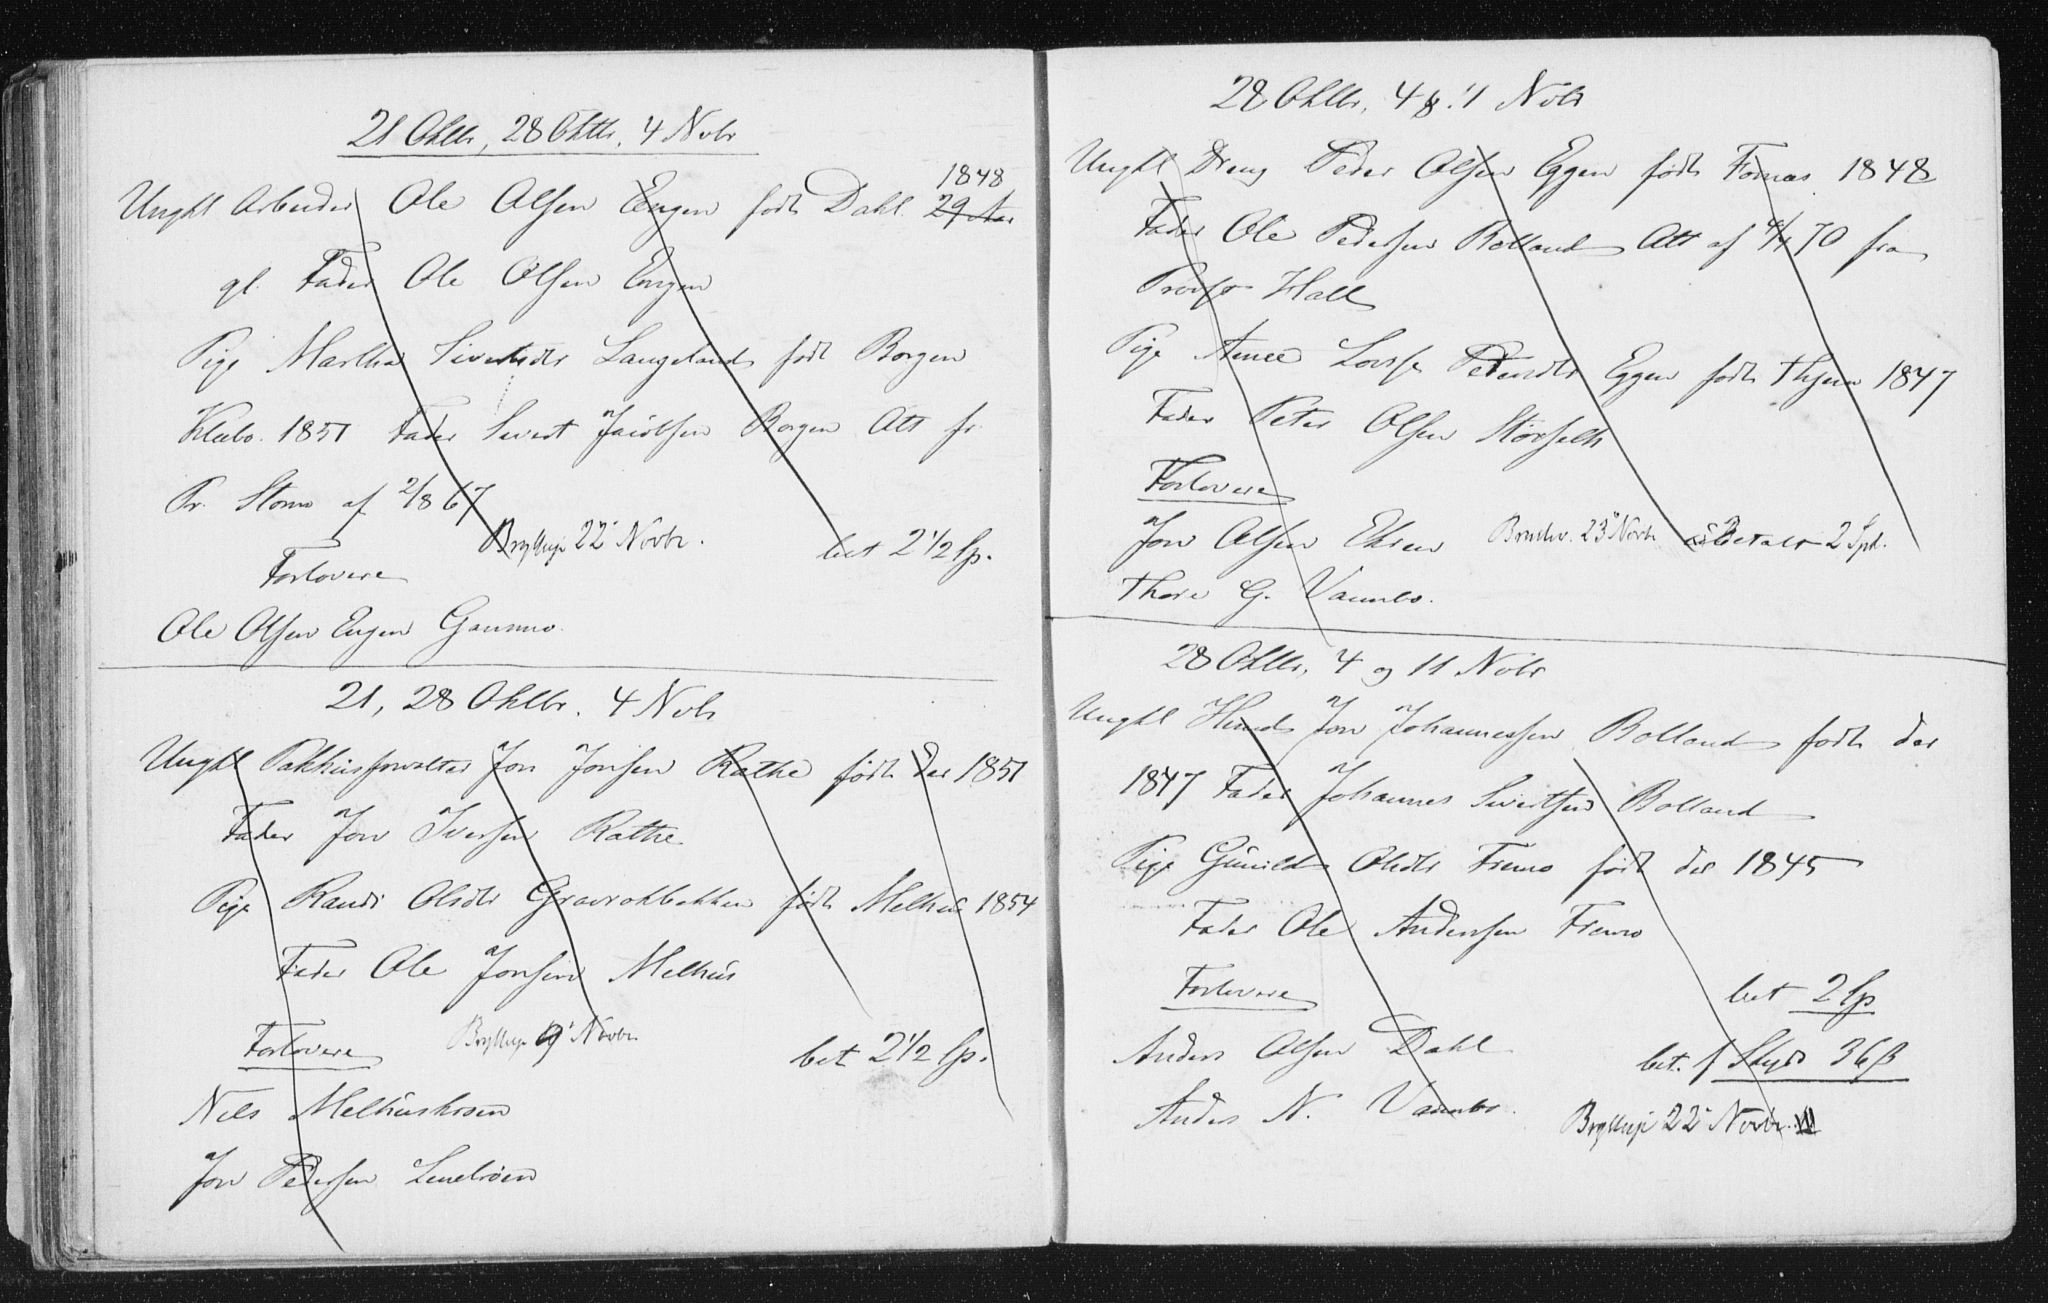 21 Oktbr, 28 Oktbr. 4 Nvbr
1848
Unghl Arbeider Ole Olsen Engen født Dahl 29 Aar
gl. Fader Ole Olsen Engen
Pige Martha Sivertsdtr Langeland født Borgen
Klæbo. 1851 Fader Sivert Jacobsen Borgen Att fr.
Pr. Storm af 2/8 67
Bryllup 22 Novbr. bet 2 1/2 Sp.
Forlovere
Ole Olsen Engen Gammo
21, 28 Oktbr. 4 Nvbr
Unghl Pakhusforvalter Jon Jonsen Rathe født der 1851
Fader Jon Iversen Rathe
Pige Randi Olsdtr Gravrokbakken født Melhus 1854
Fader Ole Jonsen Melhus
Forlovere Bryllup 9 Novbr. bet 2 1/2 Sp.
Nils Melhuskroen
Jon Pedersen
28 Oktbr. 4 & 11 Nvbr
Unghl Dreng Peder Olsen Eggen født Fornæs 1848
Fader Ole Pedersen Rolland Att af 70 fra
Provst Hall
Pige Anne Lovise Petersdtr Eggen født Thjem 1847
Fader Peter Olsen Størseth
Forlovere
Jon Olsen Ekren 23 Novbr Betalt 2 Spd.
Thore G. Vammbo.
28 Oktbr, 4 og 11 Nvbr
Unghl Jon Johannessen Bolland født der
1847 Fader Johannes Sivertsen Bolland
Pige Gunild Olsdtr Fremo født der 1845
Fader Ole Anderssen Fremo
Forlovere bet 2 Sp
Anders Olsen Dahl bet. f Skyds 36 β
Anders N. Vammbo. Bryllup 22 Novbr.